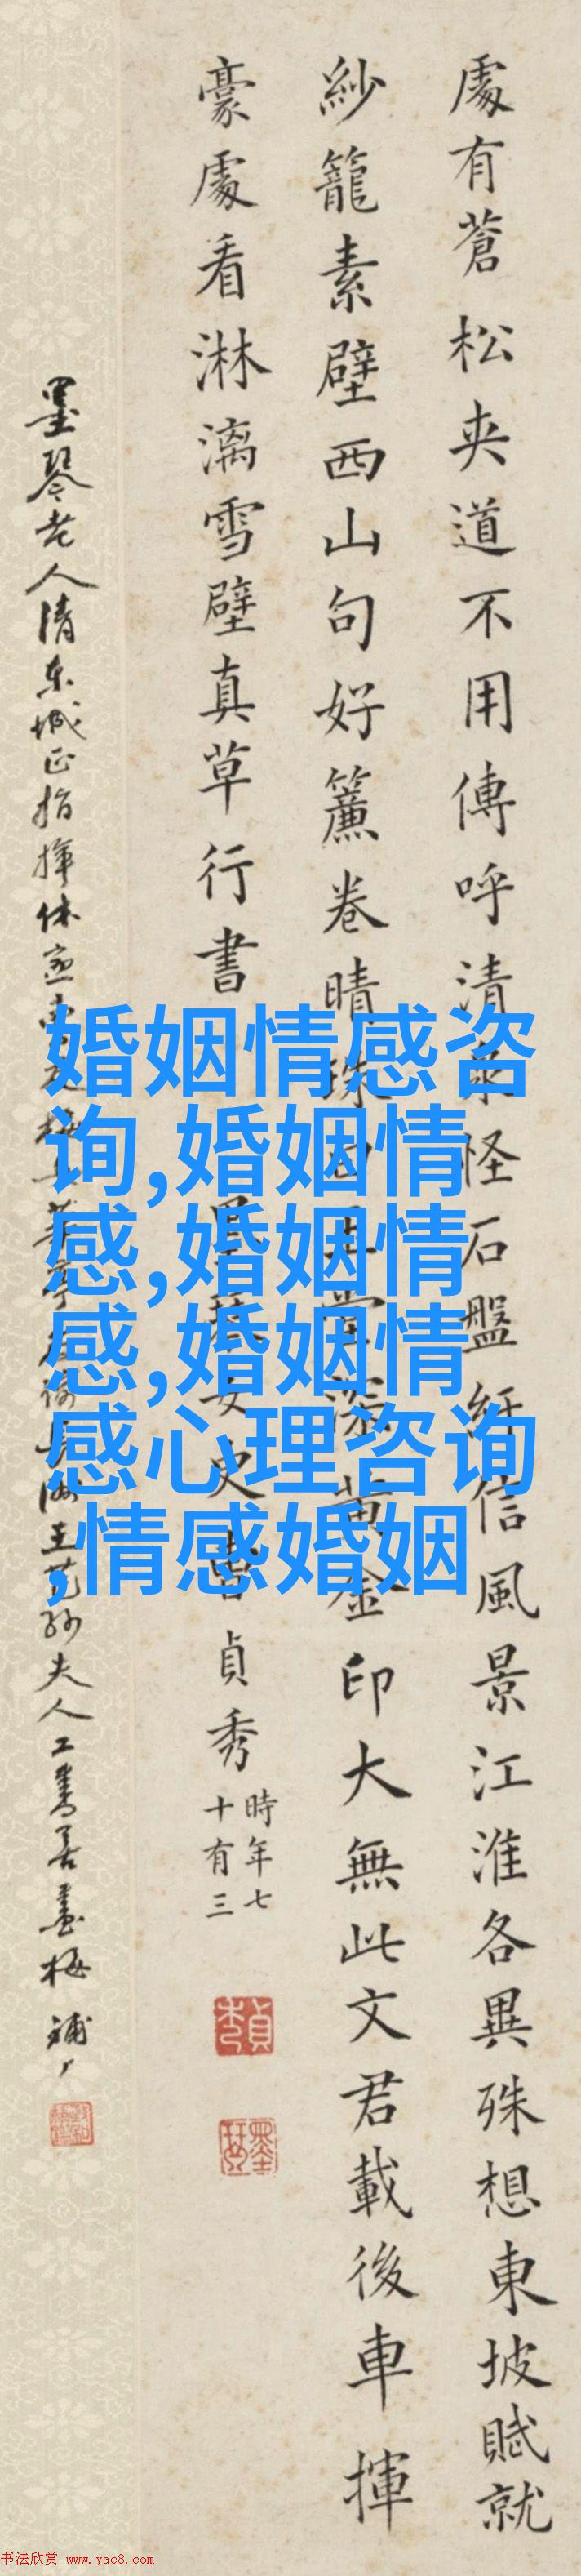 處有蒼松夾道不用傳呼清泉怪石盤紆信風景江淮各異殊想東坡賦就
紗籠素壁西山句好簾卷晴珠 黃金印大無此文君載後車揮
豪處看淋漓雪壁真草行書
女史曹貞秀
時年七
十有三
貞秀
墨琴
墨琴老人清東城正指揮休 王芑孫夫人工書善畫梅
婚姻情感咨
询,婚姻情
感,婚姻情
感,婚姻情
感心理咨询
,情感婚姻
书法欣赏 www.yac8.com